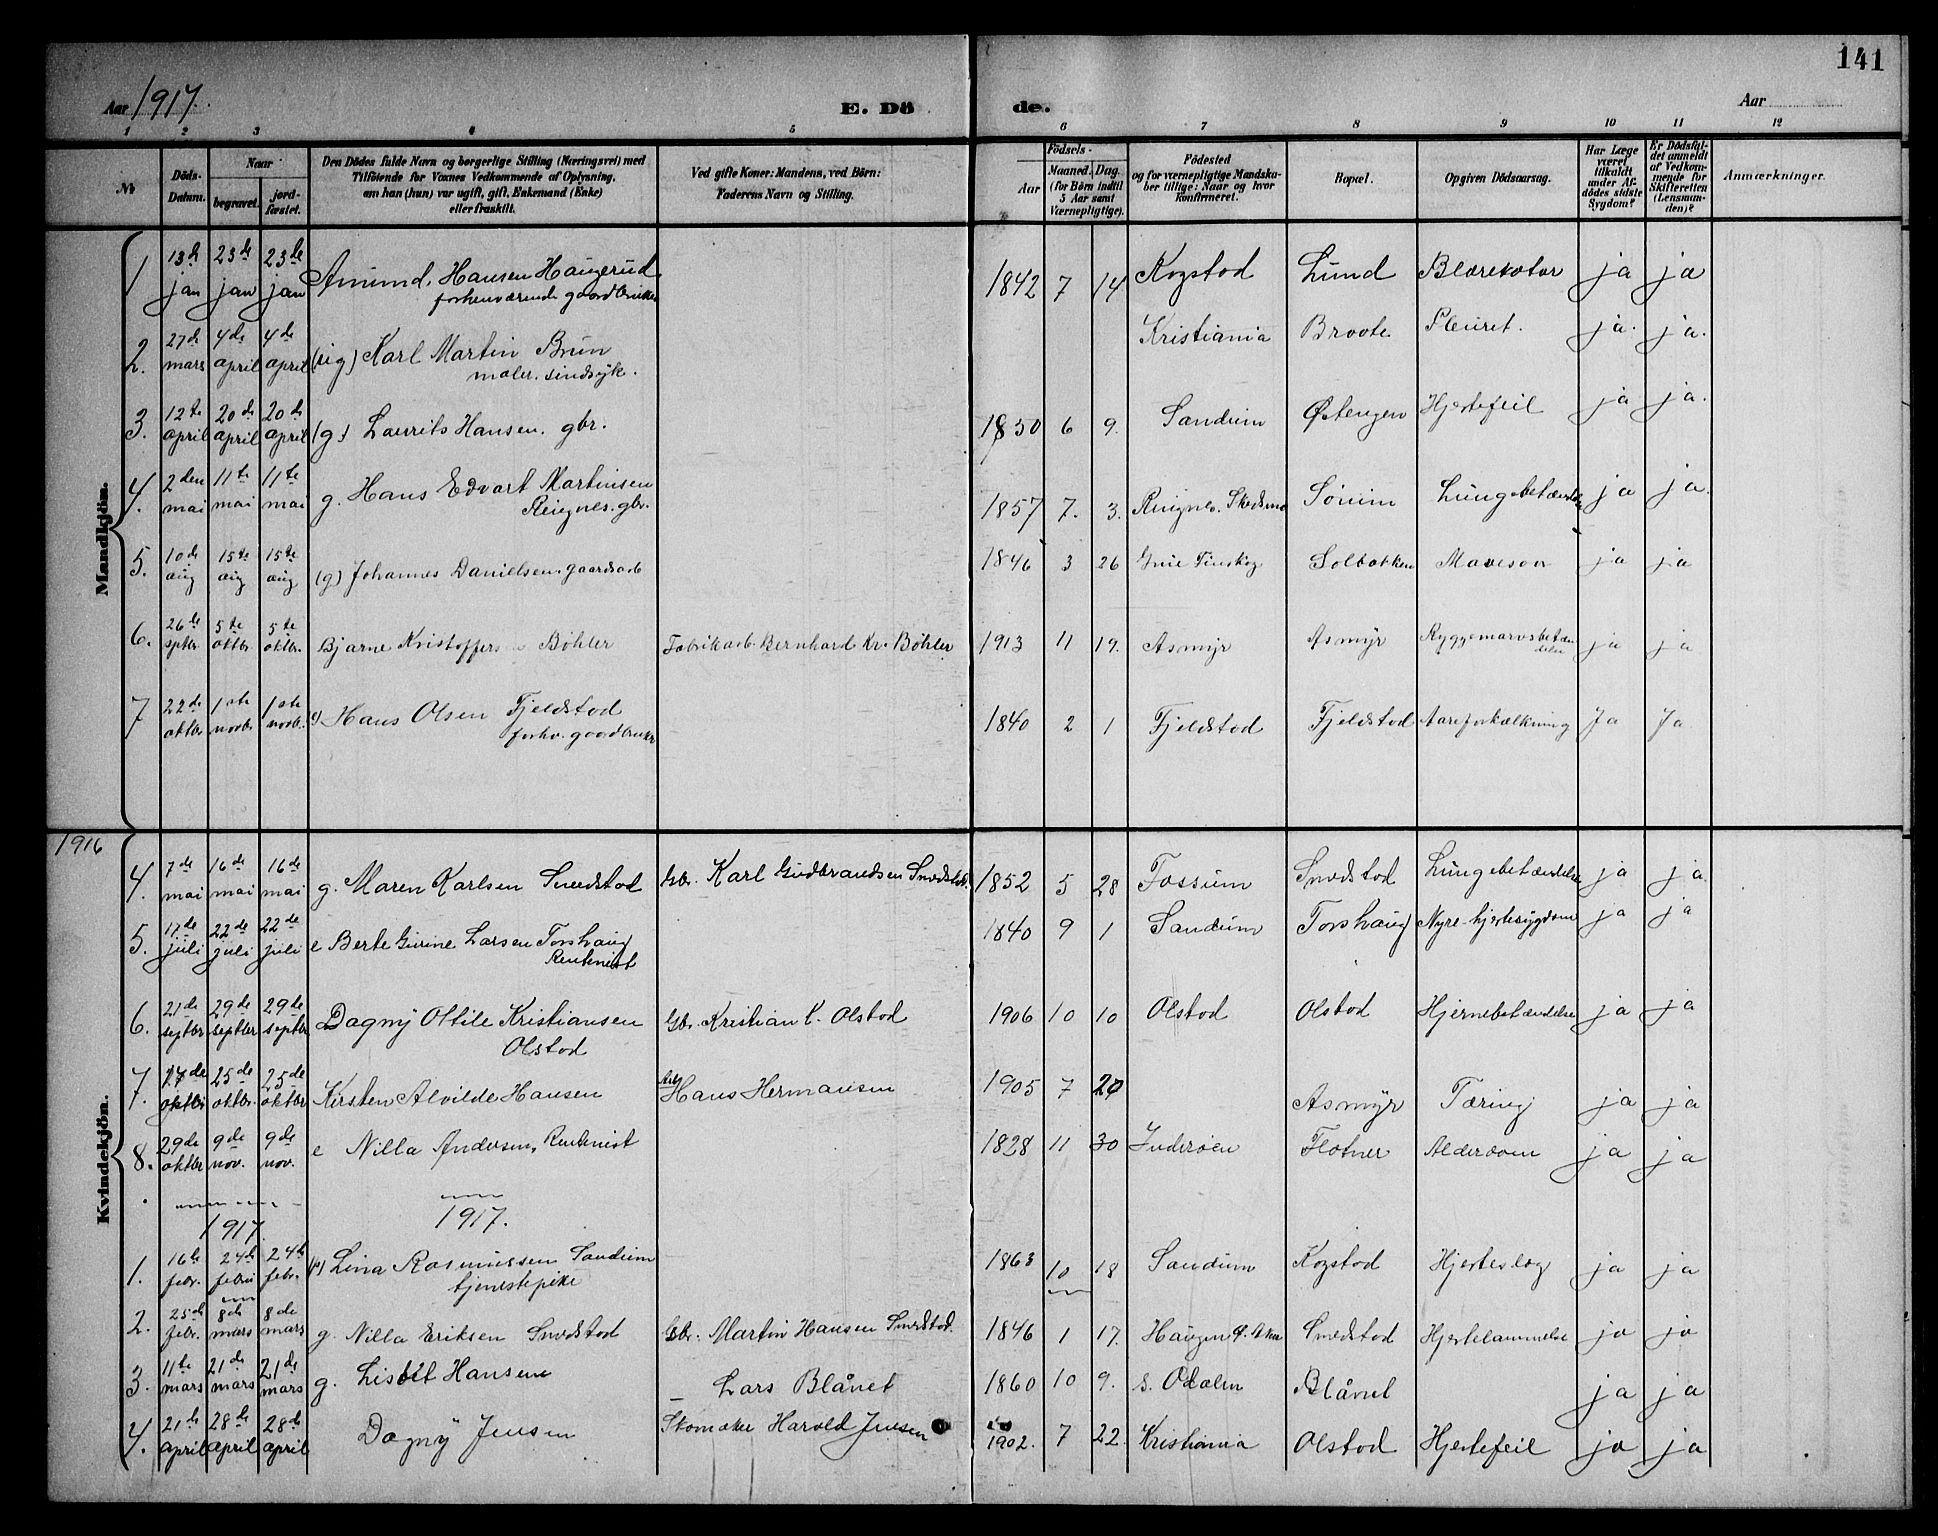 141
Aar 1917.
E. Dö
de.
Aar
1 2 3 4 5 6 7 8 9 10 11 12
№
Döds-Datum.
Naar
begravet.
jord-fæstet.
Den Dödes fulde Navn og borgerlige Stilling (Næringsvei) med
Tilföiende for Voxnes Vedkommende af Oplysning,
om han (hun) var ugift, gift, Enkemand (Enke)
eller fraskilt.
Ved gifte Koner: Mandens, ved Börn:
Faderens Navn og Stilling.
Födsels-
Aar
Maaned. Dag.
(for Börn indtil
5 Aar samt
Værnepligtige).
Födested
og for værnepligtige Mandska-
ber tillige: Naar og hvor
konfirmeret.
Bopæl.
Opgiven Dödsaarsag.
Har Læge
været
tilkaldt
under Af-
dödes sidste
Sygdom?
Er Dödsfal-
det anmeldt
af Vedkom-
mende for
Skifteretten
(Lensman-
den)?
Anmærkninger.
Mandkjön.
1 13de jan 23de jan 23de jan Amund Hansen Haugerud forhenværende gaardbruker 1842 7 14 Kogstad Lund Blærekatar ja ja
2. 27de mars 4de april 4de april (ug) Karl Martin Brun maler. sindsyk. Kristiania Braate Pleurit. ja. ja.
3. 12te april 20de april 20de april (g) Laurits Hansen. gbr. 1850 6 9. Sandum Østengen Hjertefeil ja ja.
4. 2den mai 11te mai 11te mai g. Hans Edvart Martinsen Reignes. gbr. 1857 7. 3. Ringnes. Skedsmo Sørum Lungebetændelse ja ja.
5. 10de aug 15te aug 15te aug (g) Johannes Danielsen. gaardsarb 1846 3 26 Grue Finskog Solbakken Mavesaar ja ja
6. 26de septbr 5te oktbr. 5te oktbr. Bjarne Kristoffersen Bøhler Fabrikarb. Bernhard Kr. Bøhler 1913 11 19. Asmyr Asmyr Ryggemarvsbetændelse ja ja
7 22de oktbr 1ste novbr. 1ste novbr. Hans Olsen Fjeldstad forhv. gaardbruker 1840 2 1 Fjeldstad Fjeldstad Aareforkalkning Ja Ja
1916
Kvindekjön.
4. 7de mai 16de mai 16de mai g. Maren Karlsen Smedstad Gbr. Karl Gudbrandsen Smedstad. 1852 5 28 Fossum Smedstad Lungebetændelse ja ja.
5. 17de juli 22de juli 22de juli e Berte Gurine Larsen Torshaug Rentenist 1840 9 1 Sandum Torshaug Nyre-hjertesygdom ja ja
6. 21de septbr 29de septbr 29de septbr Dagny Ottile Kristiansen Olstad Gbr. Kristian K. Olstad 1906 10 10 Olstad Olstad Hjernebetændelse ja ja
7. 17de oktbr 25de oktbr. 25de oktbr Kirsten Alvilde Hansen Arb Hans Hermansen 1905 7 20 Asmyr Tæring ja ja
8. 29de oktbr 9de nov. 9de nov. e Nilla Andersen, Rentenist 1828 11 30 Inderøen Flotner Alderdom ja ja
1917 1917.
1. 16de febr. 24de febru 24de febr. Lina Rasmussen Sandum tjenestepike 1863 10 18 Sandum Kogstad Hjerteslag ja ja
2. 25de febr. 8de mars 8de mars g. Nilla Eriksen Smedstad Gbr. Martin Hansen Smedstad. 1846 1 17. Haugen Smedstad Hjertelammelse ja ja
3. 11te mars 21de mars 21de mars g. Lisbet Hansen – Lars Blånet 1860 10 9. S. Odalen Blånet ja ja
4. 21de april 28de april 28de april Dagny Jensen Skomaker Harald Jensen 1902. 7 22. Kristiania Olstad Hjertefeil ja ja